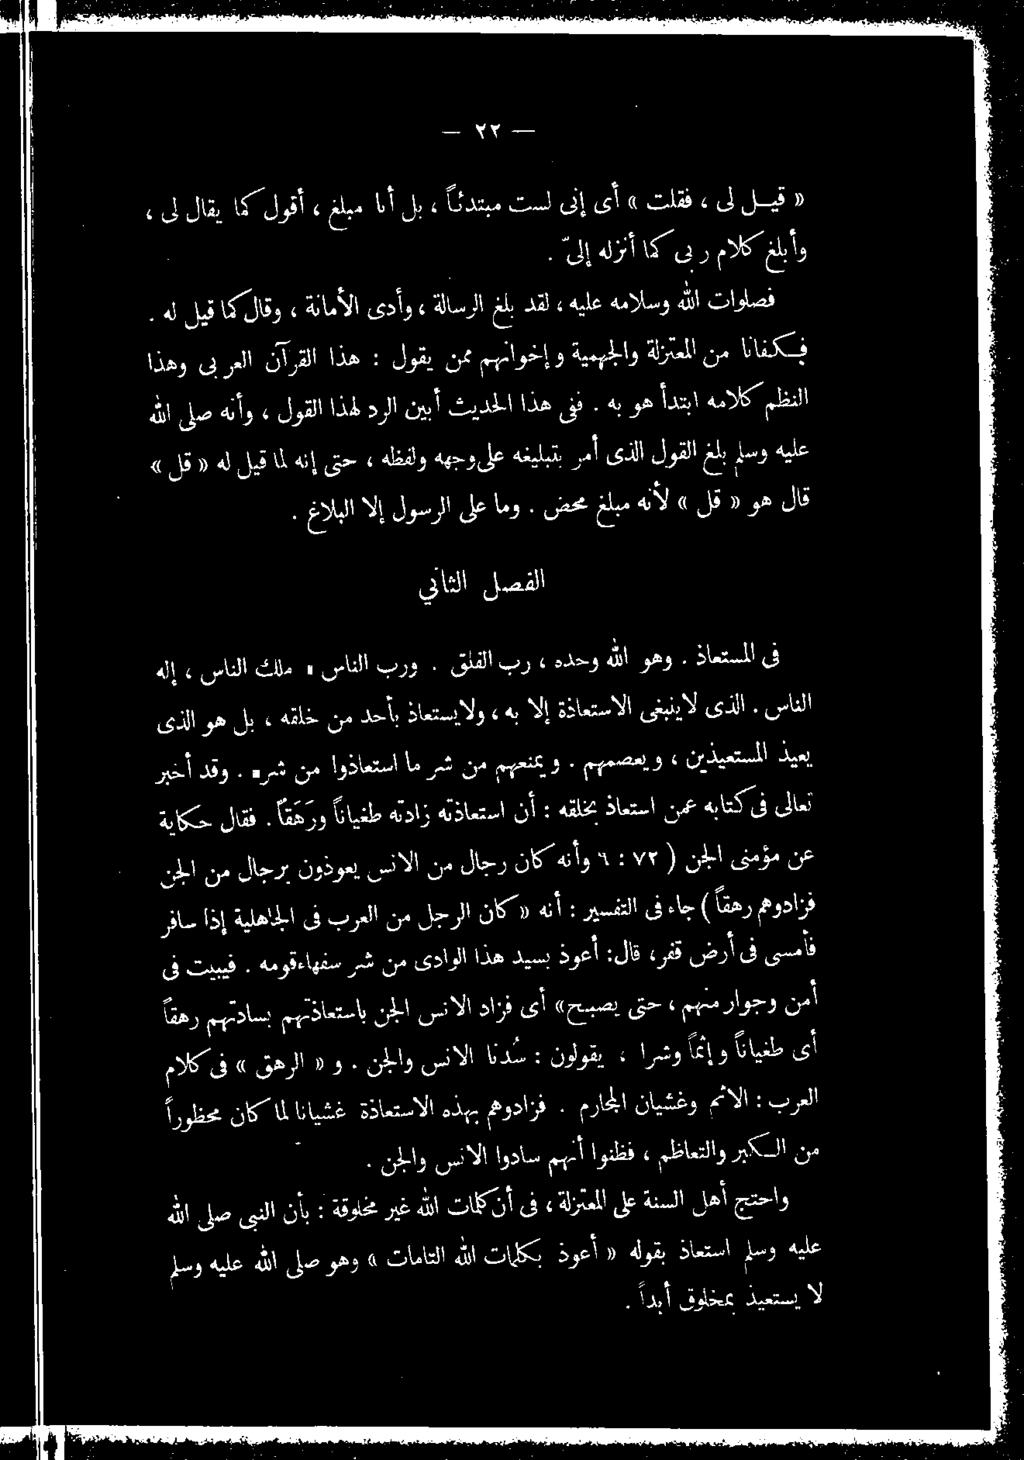 — ٢٢ —
« قيـل لى ، فقلت » أى إنى لست مبتدئاً ، بل أنا مبلغ ، أقول كما يقال لى ،
وأبلغ كلام ربى كما أنزله إلىّ .
فصلوات الله وسلامه عليه ، لقد بلغ الرسالة ، وأدى الأمانة ، وقال كما قيل له .
فـكفانا من المعتزلة والجهمية وإخوانهم ممن يقول : هذا القرآن العربى وهذا
النظم كلامه ابتدأ هو به . ففى هذا الحديث أبين الرد لهذا القول ، وأنه صلى الله
عليه وسلم بلغ القول الذى أمر بتبليغه على وجهه ولفظه ، حتى إنه لما قيل له « قل »
قال هو « قل » لأنه مبلغ محض . وما على الرسول إلا البلاغ .
الفصل الثاني
فى المستعاذ . وهو الله وحده ، رب الفلق . ورب الناس ، ملك الناس ، إله
الناس . الذى لا ينبغى الاستعاذة إلا به ، ولا يستعاذ بأحد من خلقه ، بل هو الذى
يعيذ المستعيذين ، ويعصمهم . ويمنعهم من شر ما استعاذوا من شره . وقد أخبر
تعالى فى كتابه عمن استعاذ بخلقه : أن استعاذته زادته طغياناً ورَهَقاً . فقال حكاية
عن مؤمنى الجن ( ٧٢ : ٦ وأنه كان رجال من الانس يعوذون برجال من الجن
فزادوهم رهقاً ) جاء فى التفسير : أنه « كان الرجل من العرب فى الجاهلية إذا سافر
فأمسى فى أرض قفر ، قال : أعوذ بسيد هذا الوادى من شر سفهاء قومه . فيبيت فى
أمن وجوار منهم ، حتى يصبـح » أى فزاد الانس الجن باستعاذتهم بسادتهم رهقاً
أى طغياناً وإثماً وشرا ، يقولون : سُدنا الانس والجن . و « الرهق » فى كلام
العرب : الاثم وغشيان المحارم . فزادوهم بهذه الاستعاذة غشيانا لما كان محظوراً
من الـكبر والتعاظم ، فظنوا أنهم سادوا الانس والجن .
واحتج أهل السنة على المعتزلة ، فى أن كلمات الله غير مخلوقة : بأن النبى صلى الله
عليه وسلم استعاذ بقوله « أعوذ بكلمات الله التامات » وهو صلى الله عليه وسلم
لا يستعيذ بمخلوق أبداً .